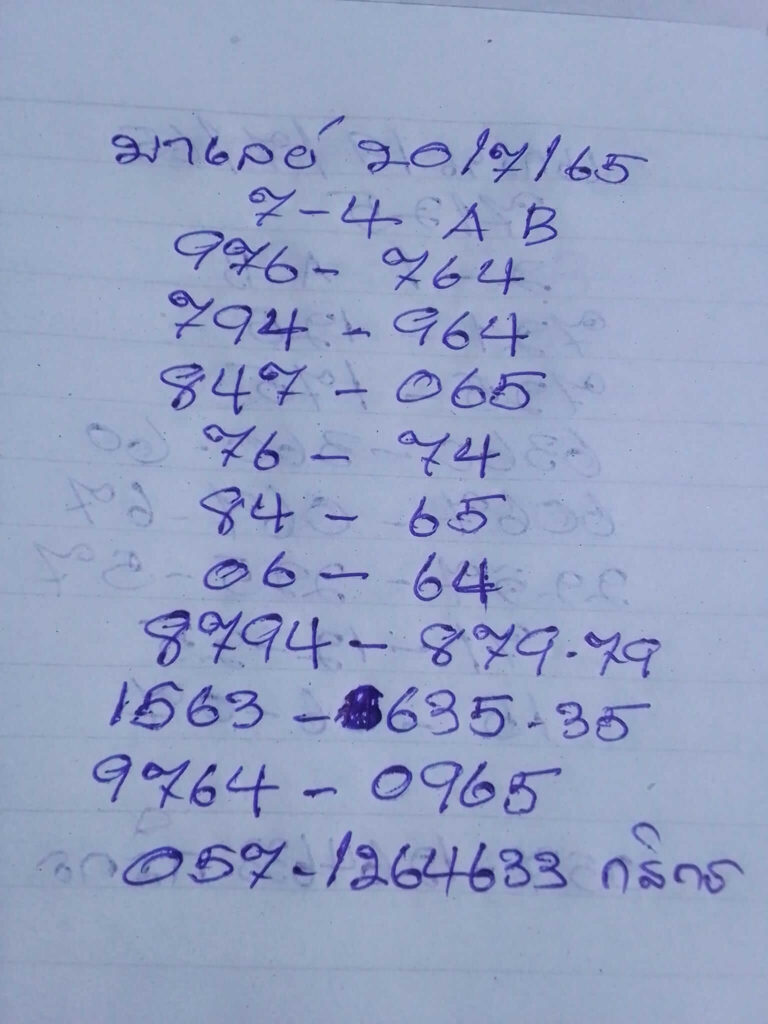 มาเลย์ 20/7/65
7-4 A B
976 - 764
794 - 964
847 - 065
76 - 74
84 - 65
06 - 64
8794 - 879.79
1563 - 635-35
9764 - 0965
057-1264633